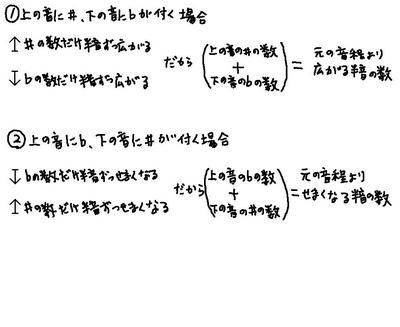 ①上の音に#、下の音にbが付く場合
↑ #の数だけ半音ずつ広がる
↓ bの数だけ半音ずつ広がる
だから (上の音の#の数 + 下の音のbの数) = 元の音程より広がる半音の数
②上の音にb、下の音に#が付く場合
↓ bの数だけ半音ずつせまくなる
↑ #の数だけ半音ずつせまくなる
だから (上の音のbの数 + 下の音の#の数) = 元の音程よりせまくなる半音の数